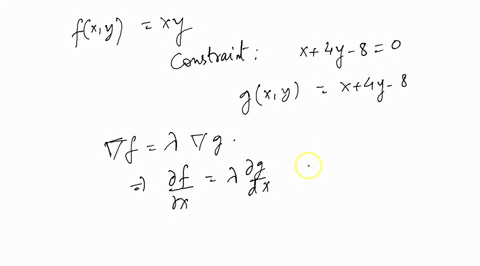 f(x,y) = xy
Constraint: x+4y-8=0
g(x,y) = x+4y-8
∇f = λ ∇g.
⇒ ∂f/∂x = λ ∂g/dx